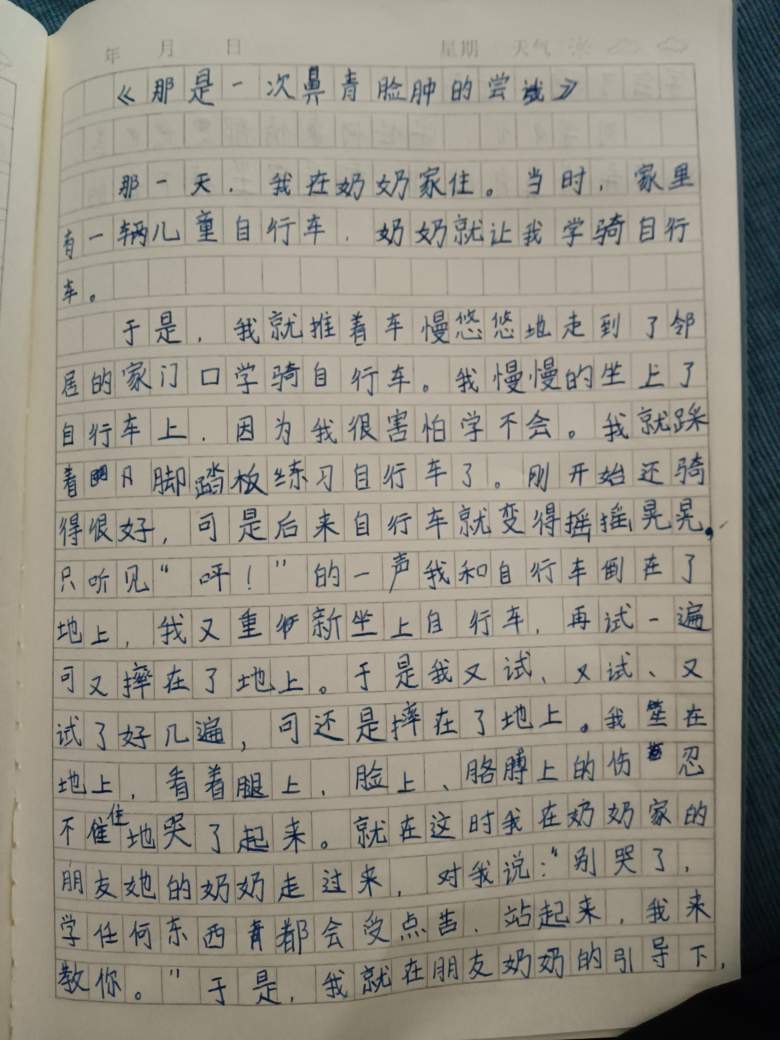 年 月 日 星期 天气
《那是一次鼻青脸肿的尝试》
那一天，我在奶奶家住。当时，家里
有一辆儿童自行车，奶奶就让我学骑自行
车。
于是，我就推着车慢悠悠地走到了邻
居的家门口学骑自行车。我慢慢的坐上了
自行车上，因为我很害怕学不会。我就踩
着 脚踏板练习自行车了。刚开始还骑
得很好，可是后来自行车就变得摇摇晃晃，
只听见“呯！”的一声我和自行车倒在了
地上，我又重新坐上自行车，再试一遍
可又摔在了地上。于是我又试、又试、又
试了好几遍，可还是摔在了地上。我坐在
地上，看着腿上、脸上、胳膊上的伤 忍
不住地哭了起来。就在这时我在奶奶家的
朋友她的奶奶走过来，对我说：“别哭了，
学任何东西都会受点苦，站起来，我来
教你。”于是，我就在朋友奶奶的引导下，